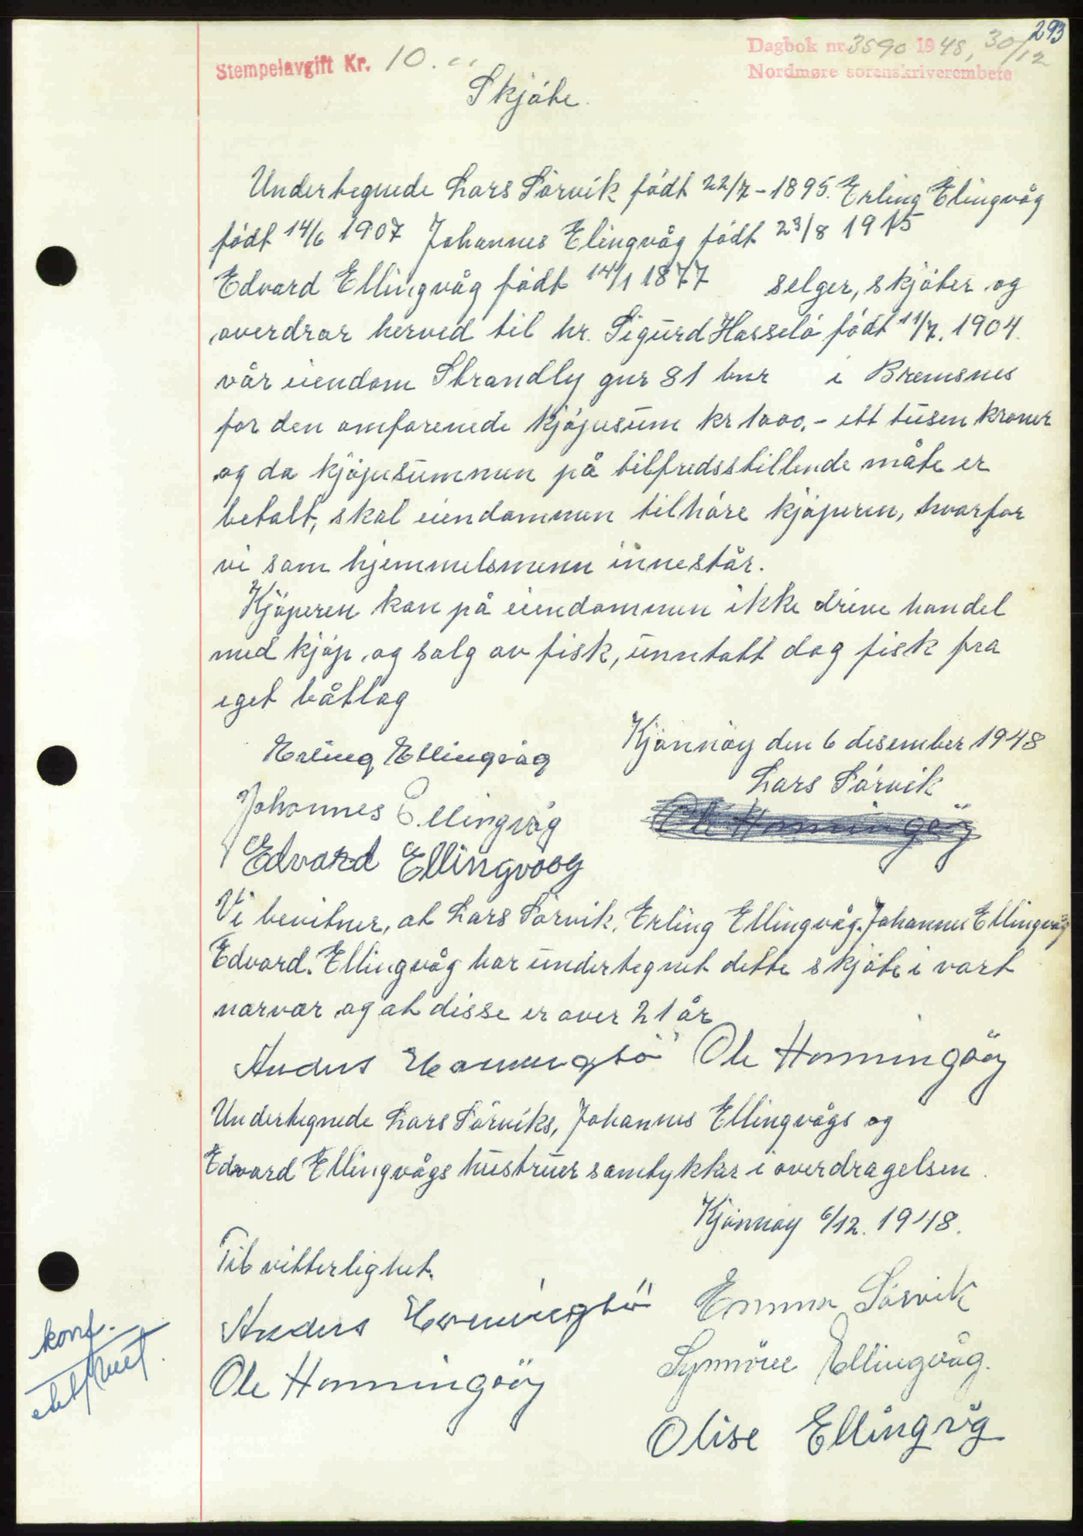 293
Stempelavgift Kr. 10.00
Dagbok nr. 3590 1948, 30/12
Nordmøre sorenskriverembete
Skjöte.
Undertegnede Lars Sörvik födt 22/7-1895. Erling Elingvåg
födt 14/6 1907 Johannes Elingvåg födt 23/8 1915
Edvard Ellingvåg födt 14/1 1877 selger, skjöter og
overdrar herved til hr. Sigurd Hasselö födt 11/7. 1904.
vår eiendom Strandly gnr 81 bnr i Bremsnes
for den omforenede kjöpesum kr 1000,- ett tusen kroner
og da kjöpesummen på tilfredsstillende måte er
betalt, skal eiendommen tilhöre kjöperen, hvorfor
vi som hjemmelsmenn innestår.
Kjöperen kan på eiendommen ikke drive handel
med kjöp og salg av fisk, unntatt dog fisk fra
eget båtlag
Kjönnöy den 6 desember 1948
Erling Ellingvåg
Lars Sörvik
Johannes Ellingvåg
Ole Homningöy
Edvard Ellingvoog
Vi bevitner, at Lars Sörvik, Erling Ellingvåg. Johannes Ellingvåg
Edvard. Ellingvåg har undertegnet dette skjöte i vart
narvar og at disse er over 21 år
Anders Ole Homningöy
Undertegnede Lars Sörviks, Johannes Ellingvågs og
Edvard Ellingvågs hustruer samtykker i overdragelsen.
Kjönnöy 6/12. 1948.
Til vitterlighet.
Anders Emma Sörvik
Ole Homningöy Synnöve Ellingvåg.
Olise Ellingvåg
konf.